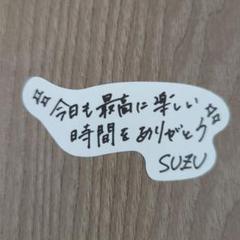 今日も最高に楽しい
時間をありがとう
SUZU